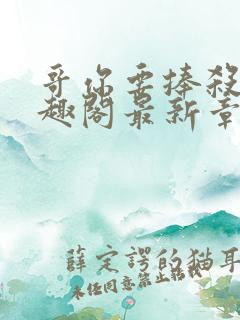 哥你要捧殺
趣閣最新章
薛定諤的猫耳
未经同意禁止转载